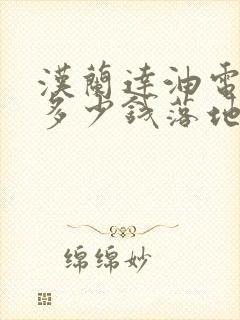 漢蘭達油電
多少錢落地
绵绵妙